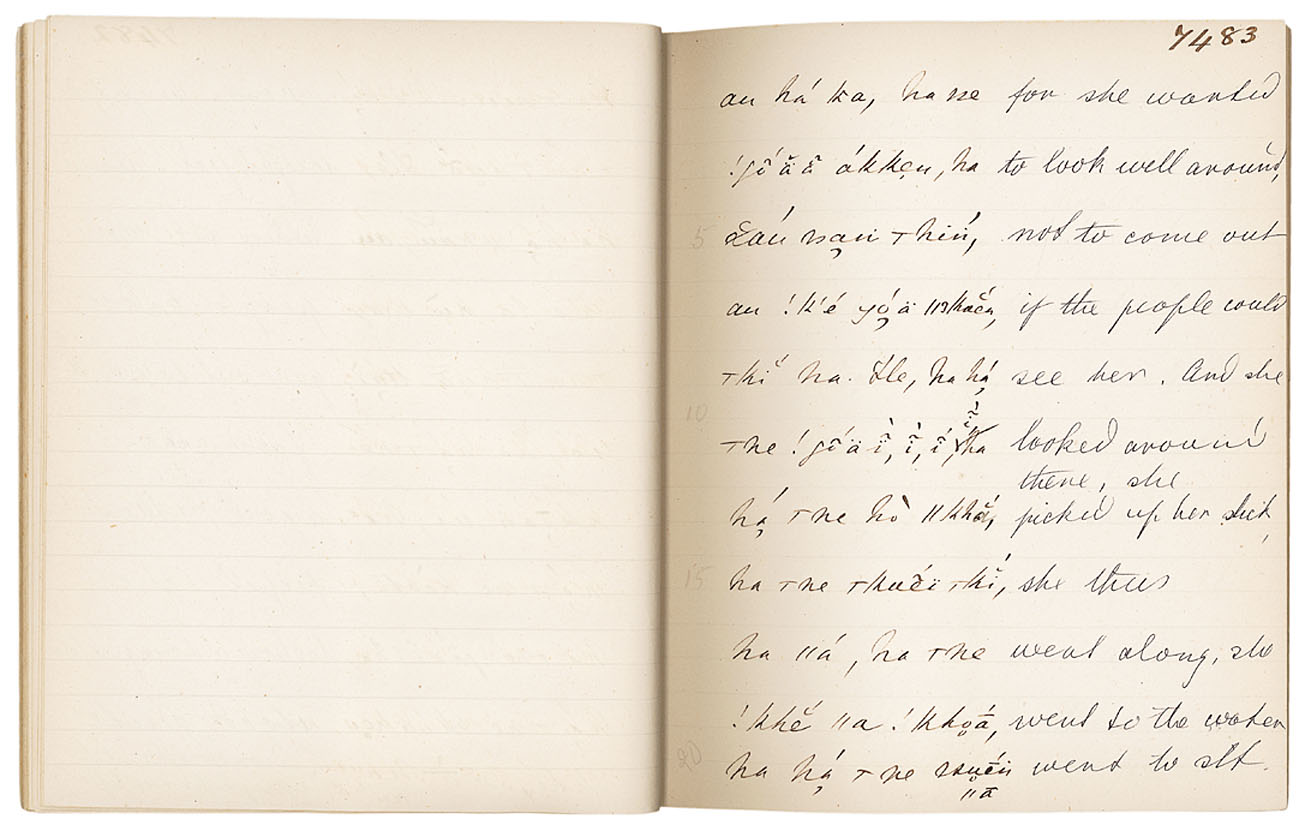 7483
au há ka, ha se for she wanted
!gó́ä ä̃ ákken, ha to look well around,
5 not to come out
au !k'é ||kaćĕn, if the people would
ha. Ӗle, ha há see her. And she
10
-ne !gõ ä ĩ̀, ĩ̀, ĩ́, ha looked around
there, she
há ⊤ne hò ||khă, picked up her stick,
15 ha ⊤ne ⊤kí, she thus
ha ||á, ha ⊤ne went along, she
!khĕ ||a !khoá, went to the water
20 ha há ⊤ne went to sit.
||ā